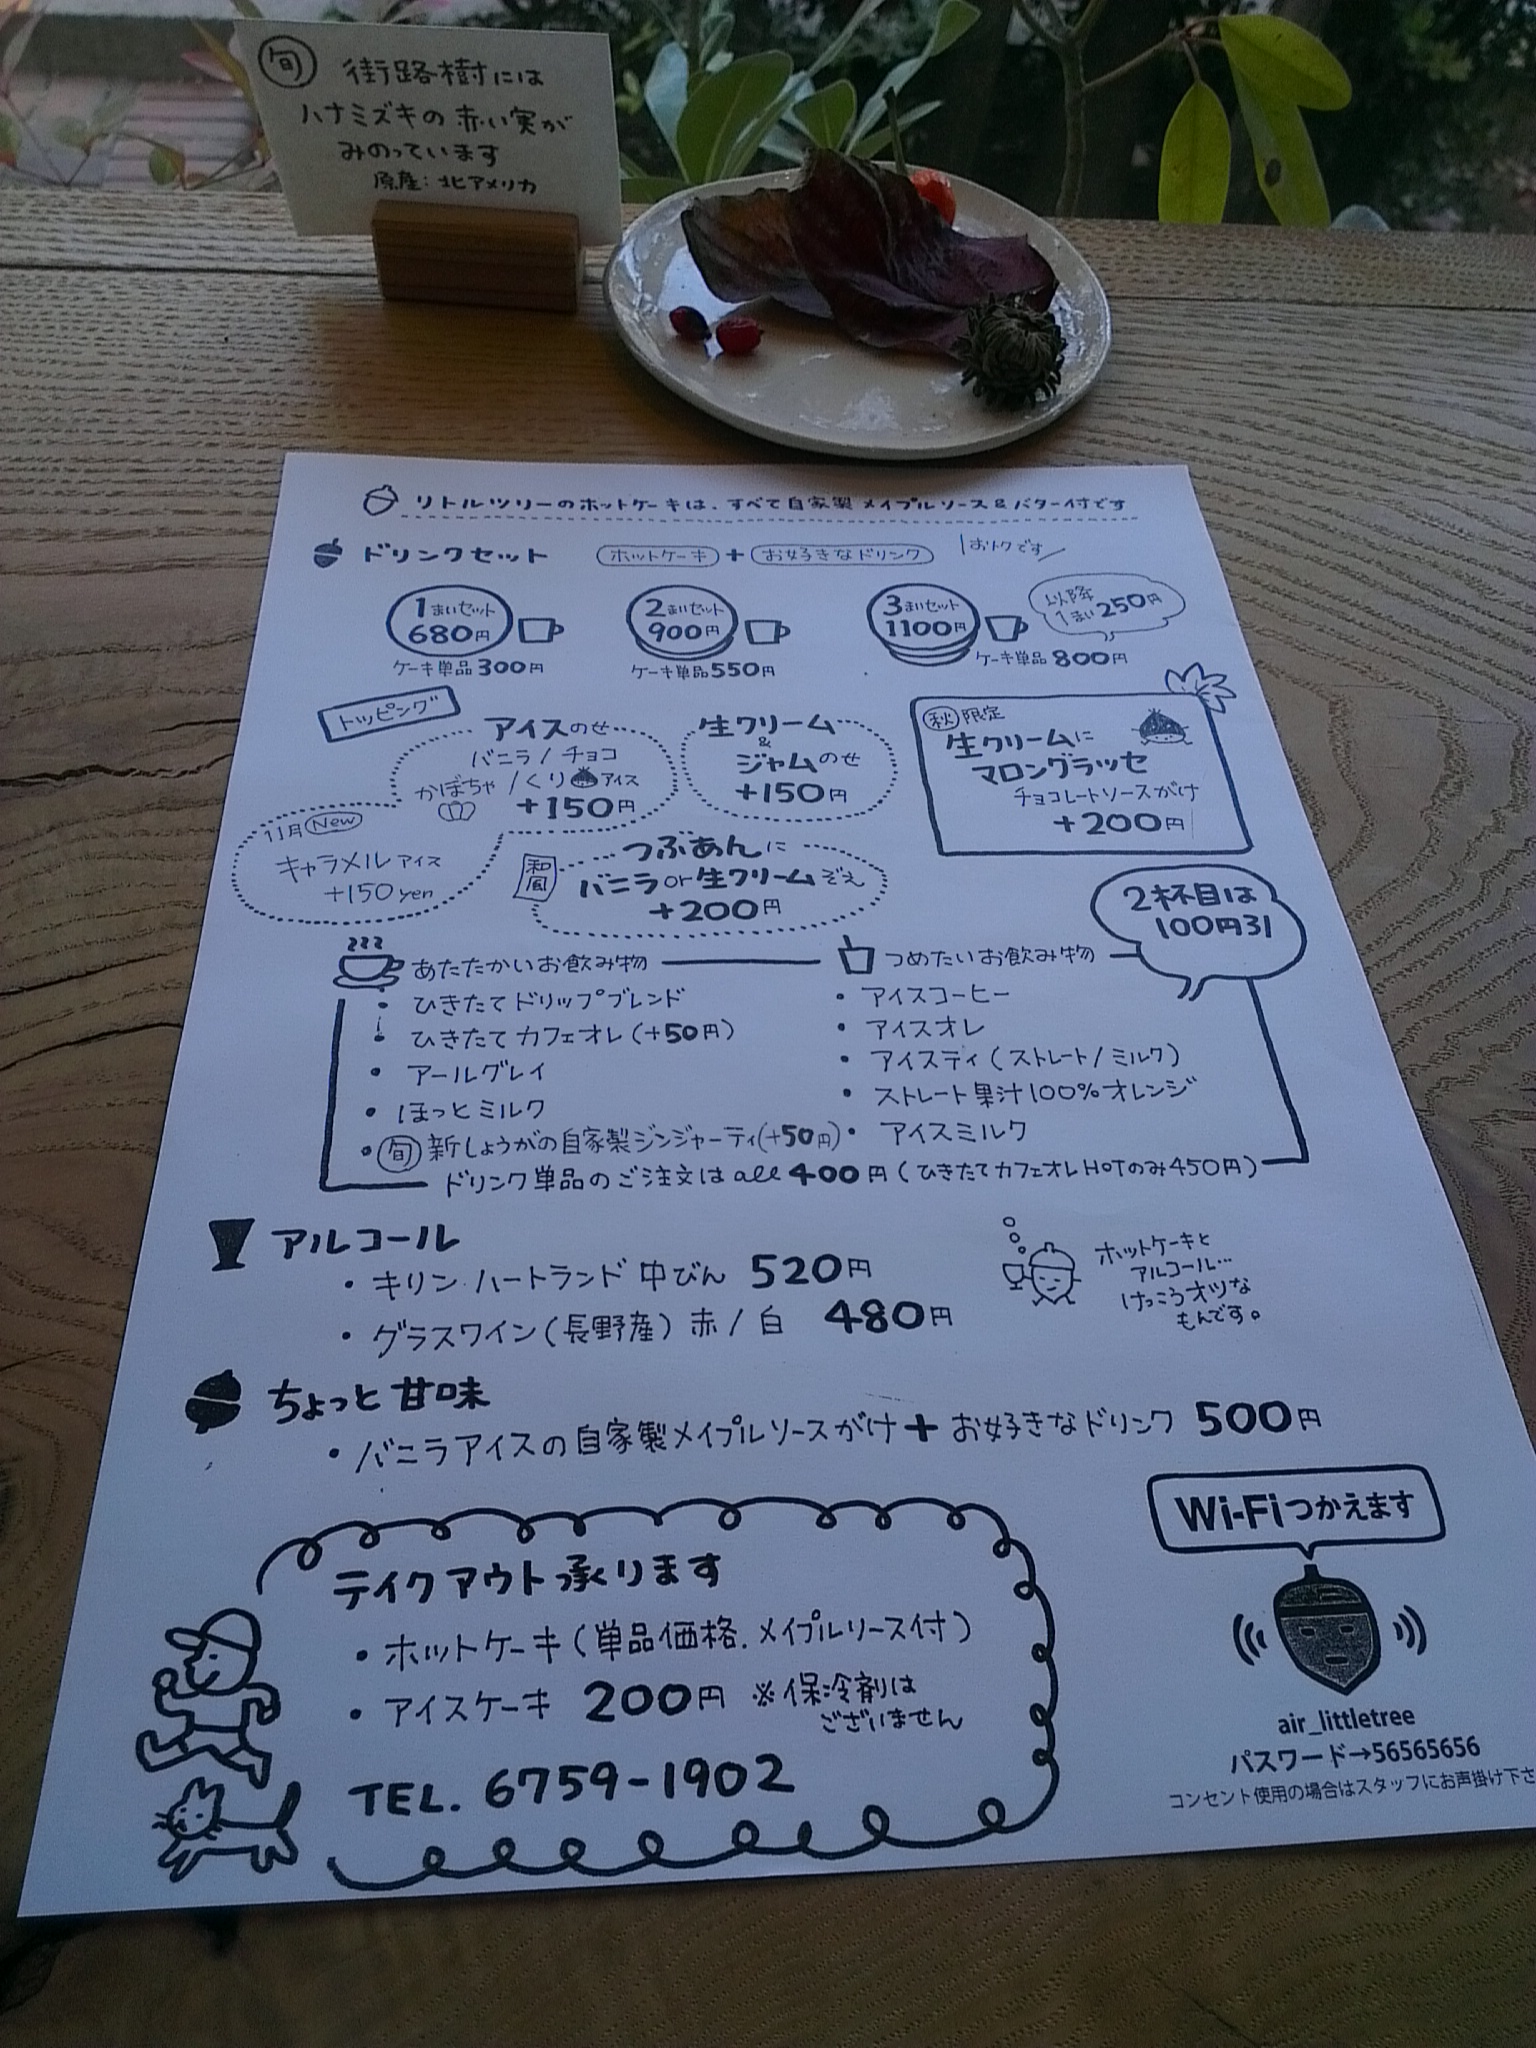 旬 街路樹には
ハナミズキの赤い実が
みのっています
原産：北アメリカ
リトルツリーのホットケーキは、すべて自家製メイプルソース&バター付です
ドリンクセット ホットケーキ + お好きなドリンク おトクです
1まいセット 680円
ケーキ単品300円
2まいセット 900円
ケーキ単品550円
3まいセット 1100円
ケーキ単品800円
以降 1まい250円
トッピング
アイスのせ
バニラ/チョコ
かぼちゃ/くりアイス
+150円
生クリーム
&
ジャムのせ
+150円
秋限定
生クリームに
マロングラッセ
チョコレートソースがけ
+200円
11月New
キャラメルアイス
+150yen
和風
つぶあんに
バニラor生クリームぞえ
+200円
2杯目は
100円引
あたたかいお飲み物
・ひきたてドリップブレンド
・ひきたてカフェオレ(+50円)
・アールグレイ
・ほっとミルク
・旬 新しょうがの自家製ジンジャーティ(+50円)
つめたいお飲み物
・アイスコーヒー
・アイスオレ
・アイスティ(ストレート/ミルク)
・ストレート果汁100%オレンジ
・アイスミルク
ドリンク単品のご注文はall400円(ひきたてカフェオレHOTのみ450円)
アルコール
・キリンハートランド中びん 520円
・グラスワイン(長野産)赤/白 480円
ホットケーキと
アルコール…
けっこうオツな
もんです。
ちょっと甘味
・バニラアイスの自家製メイプルソースがけ+お好きなドリンク 500円
テイクアウト承ります
・ホットケーキ(単品価格、メイプルソース付)
・アイスケーキ 200円 ※保冷剤は
ございません
TEL. 6759-1902
Wi-Fiつかえます
air_littletree
パスワード→56565656
コンセント使用の場合はスタッフにお声掛け下さ